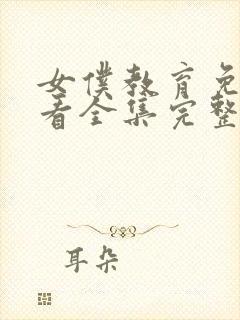 女僕教育免
看全集完整
耳朵